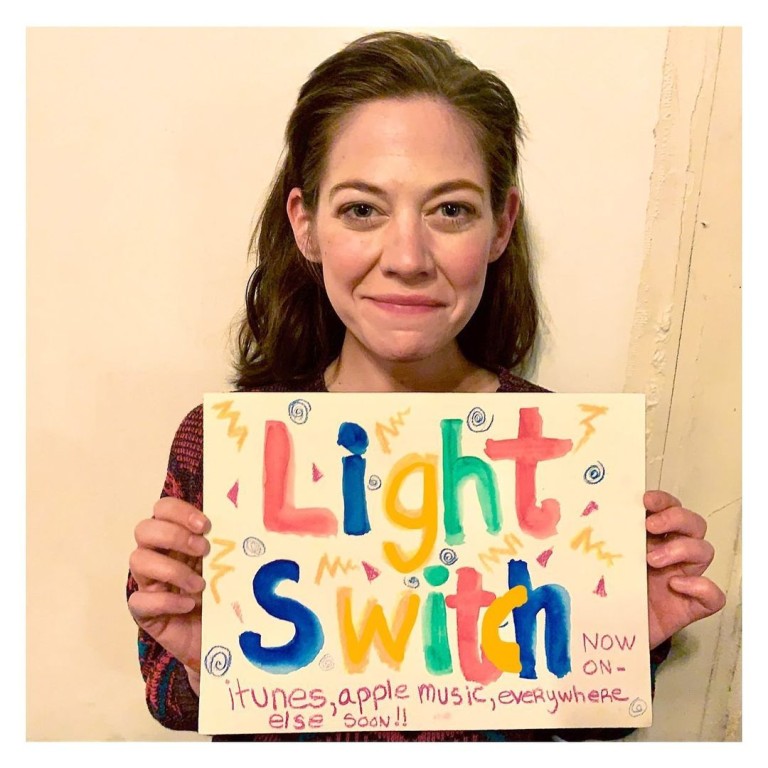 Light
Switch
NOW
ON-
itunes, apple music, everywhere
else soon!!